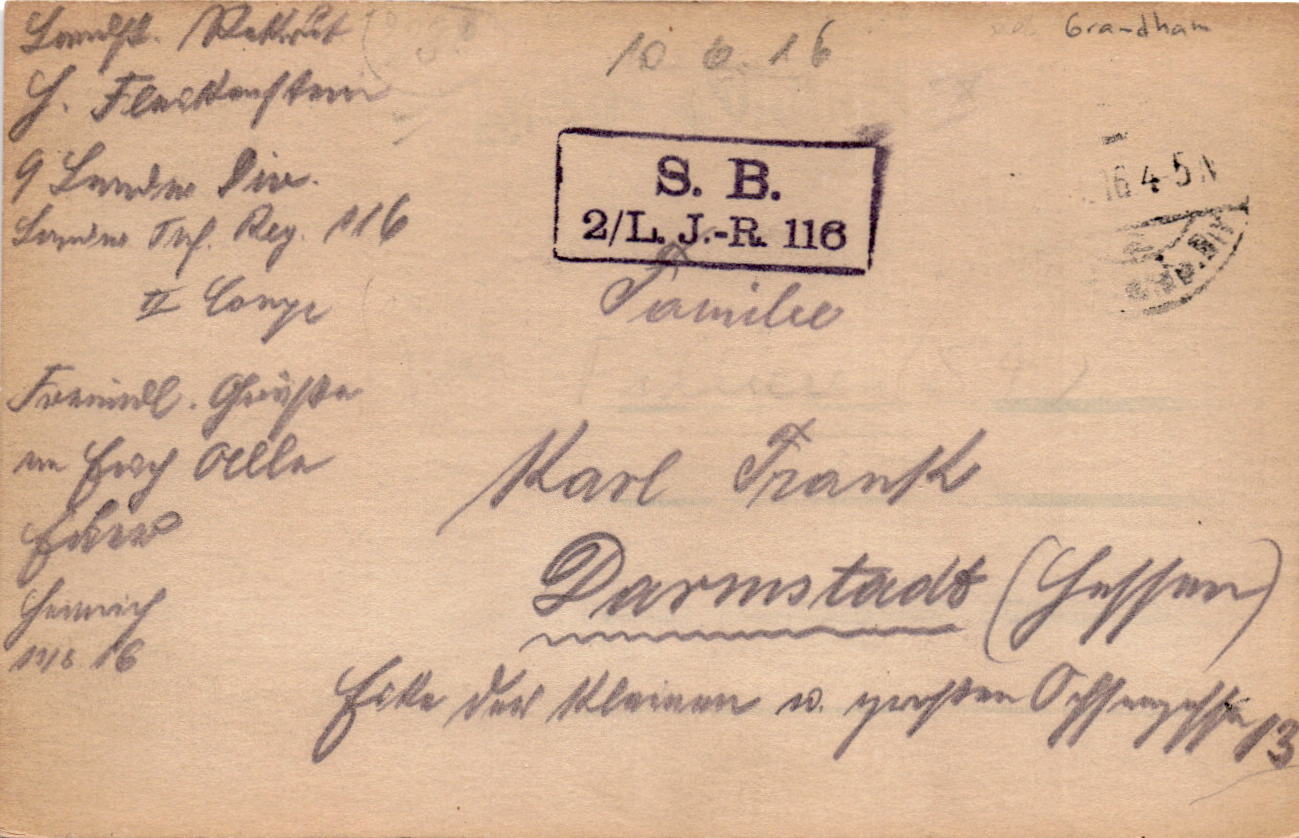 Landst. Rekrut
H. Fleckenstein
9 Landw Div.
Landw Inf. Reg. 116
II Comp
Freundl. Grüße
an Euch Alle
Euer
Heinrich
10 6. 16
Grandham
S. B.
2/L. J.-R. 116
16 4-5 N
Familie
Karl Frank
Darmstadt (Hessen)
Ecke der kleinen u. großen Ochsengasse 13